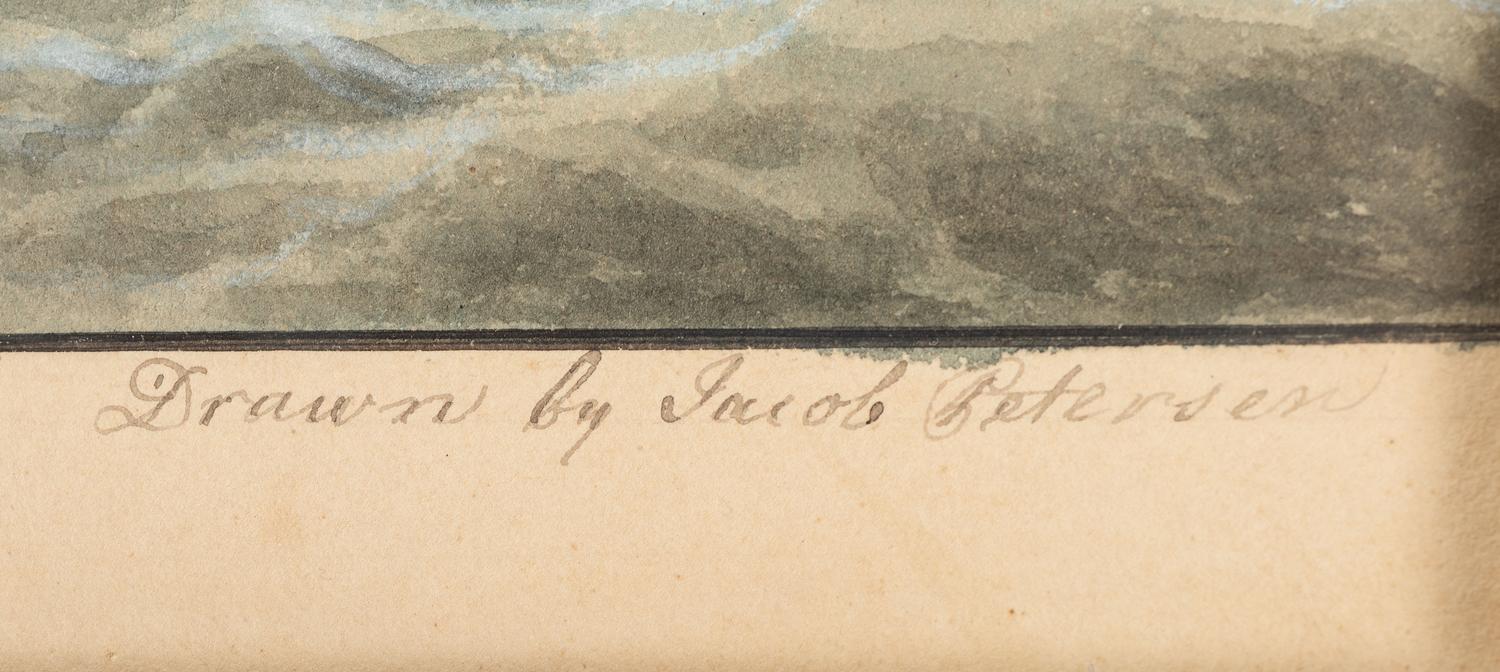 Drawn by Jacob Petersen